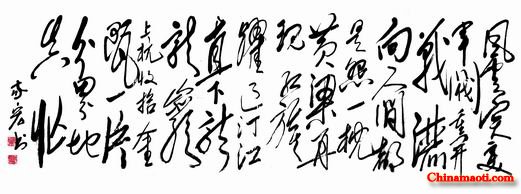 风云突变
军阀重开
战洒
向人间都
是怨一枕
黄粱再
现红旗
躍过汀江
直下龙
岩
上杭收拾金
瓯一片
分田分地
真忙
Chinamaoti.com